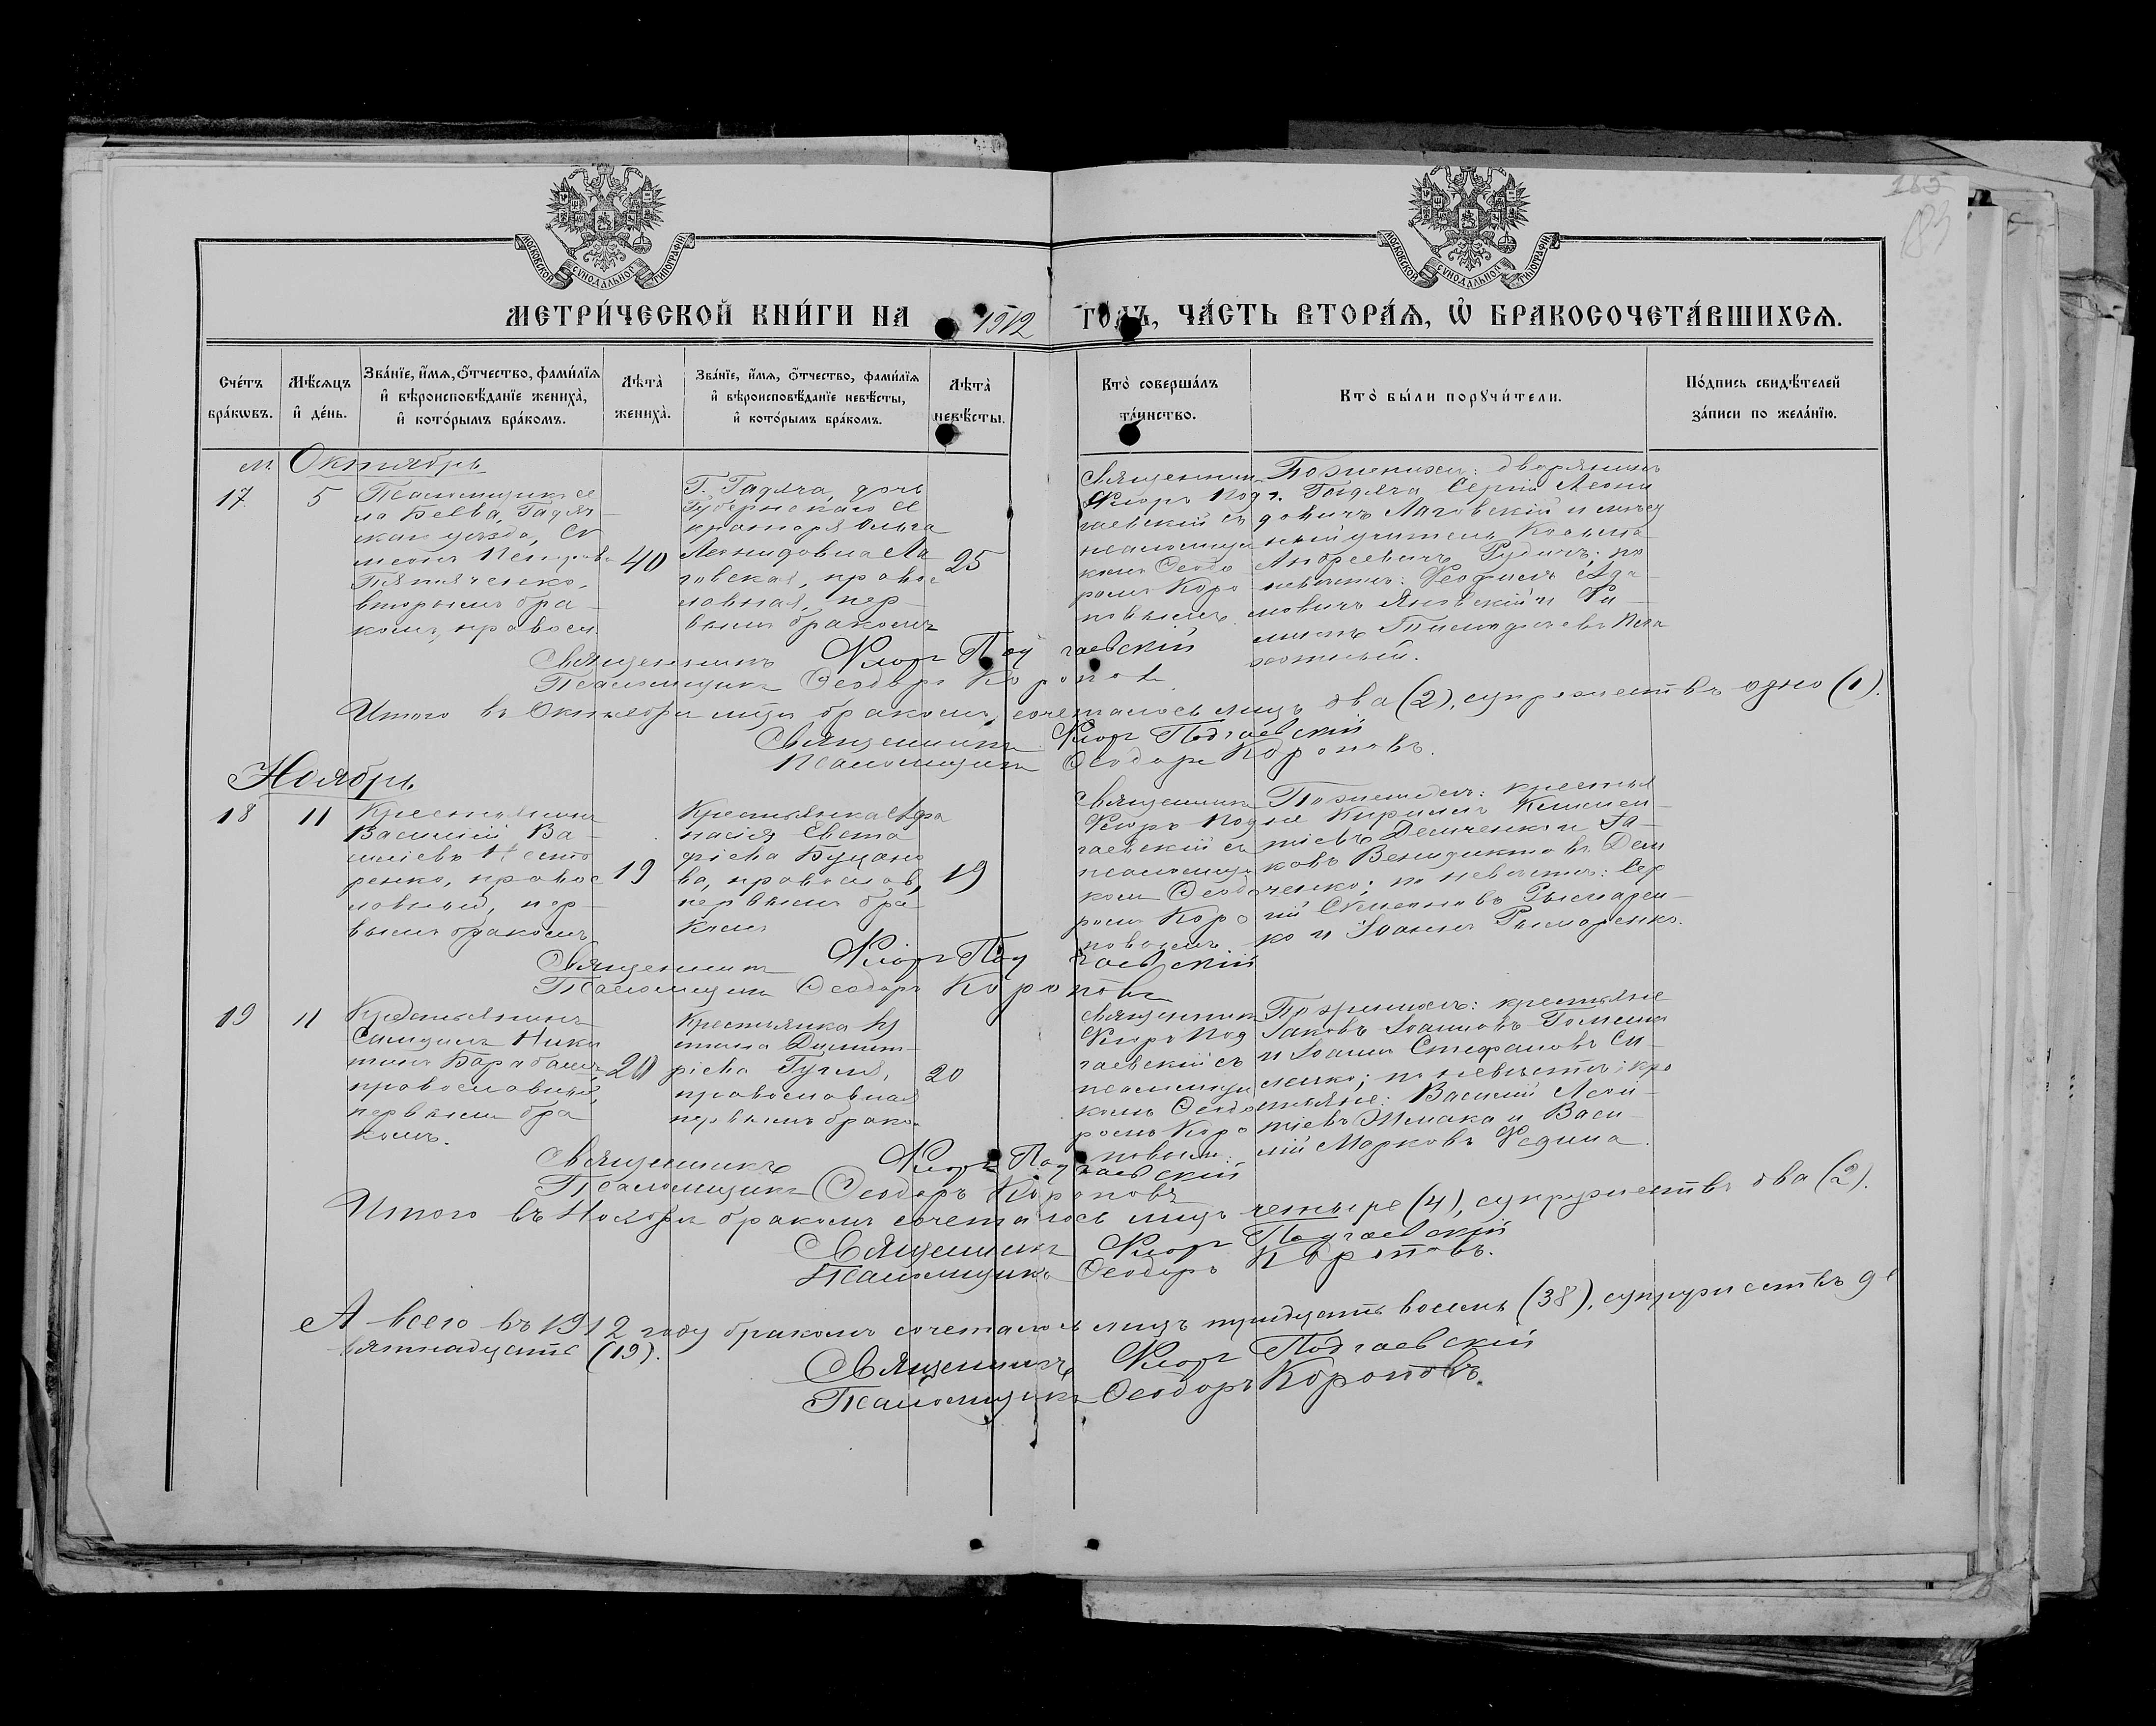 185
МОСКОВСКОЙ СѴНОДАЛЬНОЙ ТИПОГРАФІИ
МОСКОВСКОЙ СѴНОДАЛЬНОЙ ТИПОГРАФІИ
МЕТРИ́ЧЕСКОЙ КНИ́ГИ НА 1912 ГОДЪ, ЧА́СТЬ ВТОРА́Ѧ, Ѽ БРАКОСОЧЕТА́ВШИХСѦ.
Сче́тъ бра́кѡвъ.
Мѣ́сѧцъ и҆ де́нь.
Зва́нїе, и҆́мѧ, ѻ҆́тчество, фами́лїѧ
и҆ вѣроисповѣ́данїе жениха̀,
и҆ кото́рымъ бра́комъ.
Лѣ́та̀ жениха̀.
Зва́нїе, и҆́мѧ, ѻ҆́тчество, фами́лїѧ
и҆ вѣроисповѣ́данїе невѣ́сты,
и҆ кото́рымъ бра́комъ.
Лѣ́та̀ невѣ́сты.
Кто̀ соверша́лъ
та́инство.
Кто̀ бы́ли порꙋчи́тели.
По́дпись свидѣ́телей
за́писи по жела́нїю.
м. Октябрь
17
5
Псаломщикъ се
ла Беева, Гадяч
скаго уѣзда, Си
меонъ Петровъ
вторымъ бра-
комъ, правосл.
40
Г. Гадяча, дочь
Губернскаго Се
кратаря Ольга
Леонидовна Ля
говская, правос
лавная, пер-
вымъ бракомъ
25
Священникъ
Флоръ Под
гаевскій съ
псаломщи
комъ Ѳеодо
ромъ Коро
повымъ.
По женихѣ: дворянинъ
г. Гадяча Сергій Леони
довичъ Ляговскій и
учитель Косьма
Андреевичъ Рудичъ; по
невѣстѣ: Ада-
мовичъ Яновскій и Фи
липпъ Тимофеевъ
Священникъ Флоръ Подгаевскій
Псаломщикъ Ѳеодоръ Короповъ
Итого въ Октябрѣ мцѣ бракомъ сочеталось лицъ два (2), супружествъ одно (1).
Священникъ Флоръ Подгаевскій
Псаломщикъ Ѳеодоръ Короповъ.
Ноябрь
18
11
Крестьянинъ
Василій Ва-
силіевъ Несте
ренко, правос
лавный, пер-
вымъ бракомъ
19
Крестьянка Афа
насія Евста
фіева Буцано
ва, православ,
первымъ бра
комъ
19
Священникъ
Флоръ Под
гаевскій съ
псаломщи
комъ Ѳеодо
ромъ Коро
повымъ.
По женихѣ: крестья
не Кириллъ Климен-
тіевъ Демченко и Іа-
ковъ Венедиктовъ Дем
ченко; по невѣстѣ: Сер
гій Симеоновъ Рымарен-
ко и Іоаннъ Рымаренко.
Священникъ Флоръ Подгаевскій
Псаломщикъ Ѳеодоръ Короповъ
19
11
Крестьянинъ
Самуилъ Ники
тинъ Барабашъ
православный,
первымъ бра
комъ.
20
Крестьянка Іу
стина Димит-
ріева Гугля,
православная
первымъ брако.
20
Священникъ
Флоръ Под
гаевскій съ
псаломщи
комъ Ѳеодо
ромъ Коро
повымъ.
По женихѣ: крестьяне
Іаковъ Іоанновъ
и Іоаннъ Стефановъ Си-
ленко; по невѣстѣ: кре
стьяне: Василій Леон-
тіевъ Жмака и Васи-
лій Марковъ Федина.
Священникъ Флоръ Подгаевскій
Псаломщикъ Ѳеодоръ Короповъ
Итого въ Ноябрѣ бракомъ сочеталось лицъ четыре (4), супружествъ два (2).
Священникъ Флоръ Подгаевскій
Псаломщикъ Ѳеодоръ Короповъ.
А всего въ 1912 году бракомъ сочеталось лицъ тридцать восемь (38), супружествъ де
вятнадцать (19).
Священникъ Флоръ Подгаевскій
Псаломщикъ Ѳеодоръ Короповъ.